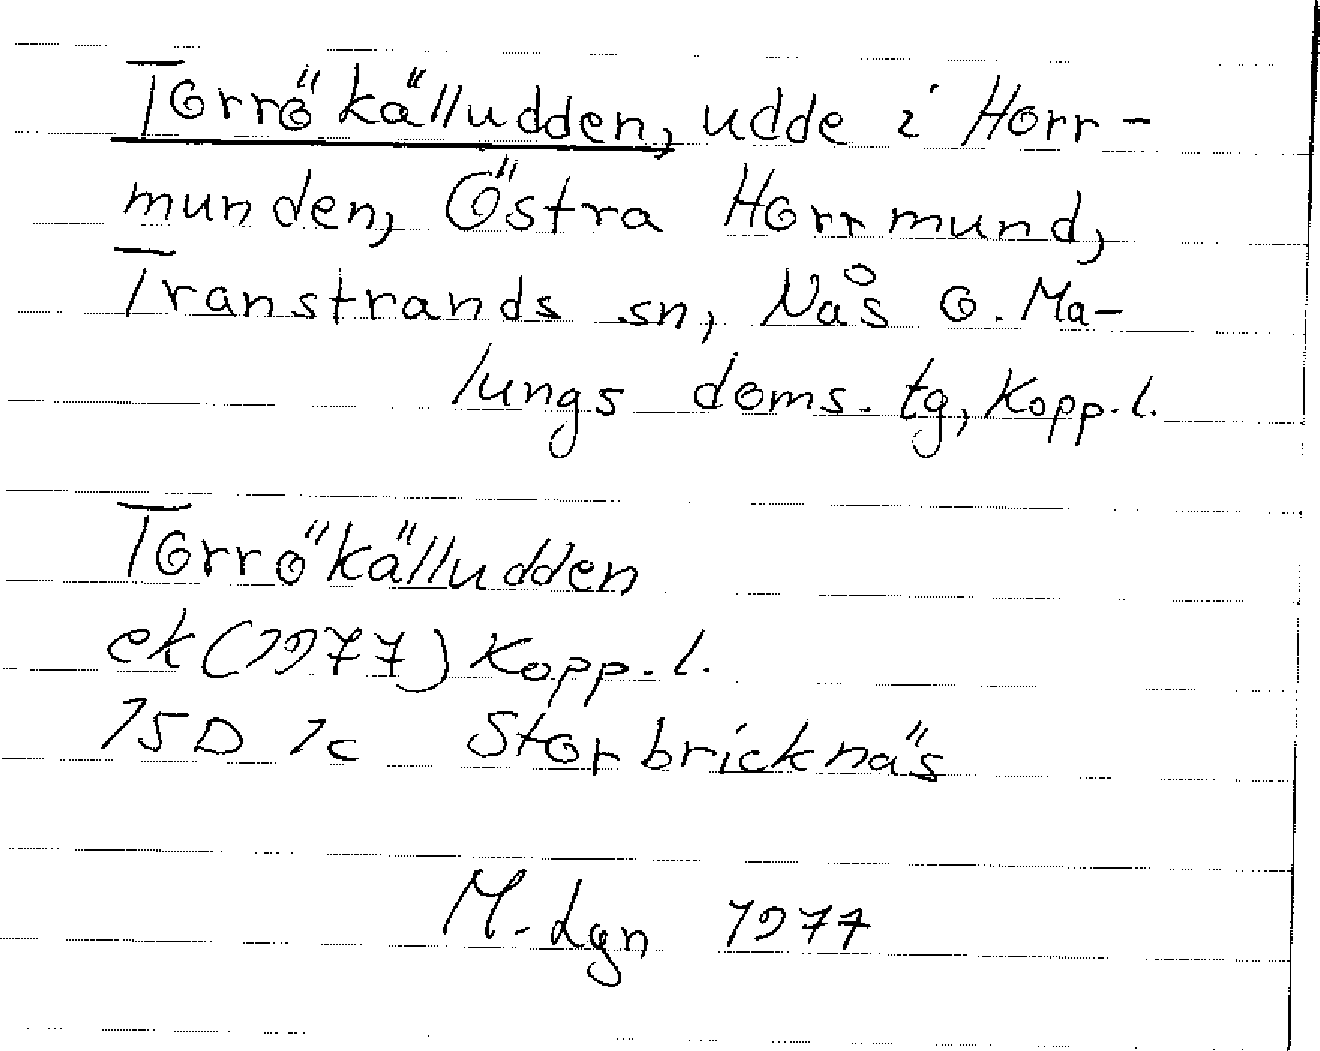 Torrökälludden, udde i Horr-
munden, Östra Horrmund,
Transtrands sn, Nås o. Ma-
lungs doms. tg, Kopp. l.
Torrökälludden
ek (1977) Kopp. l.
15D 1c Storbricknäs
M. Lgn 1977